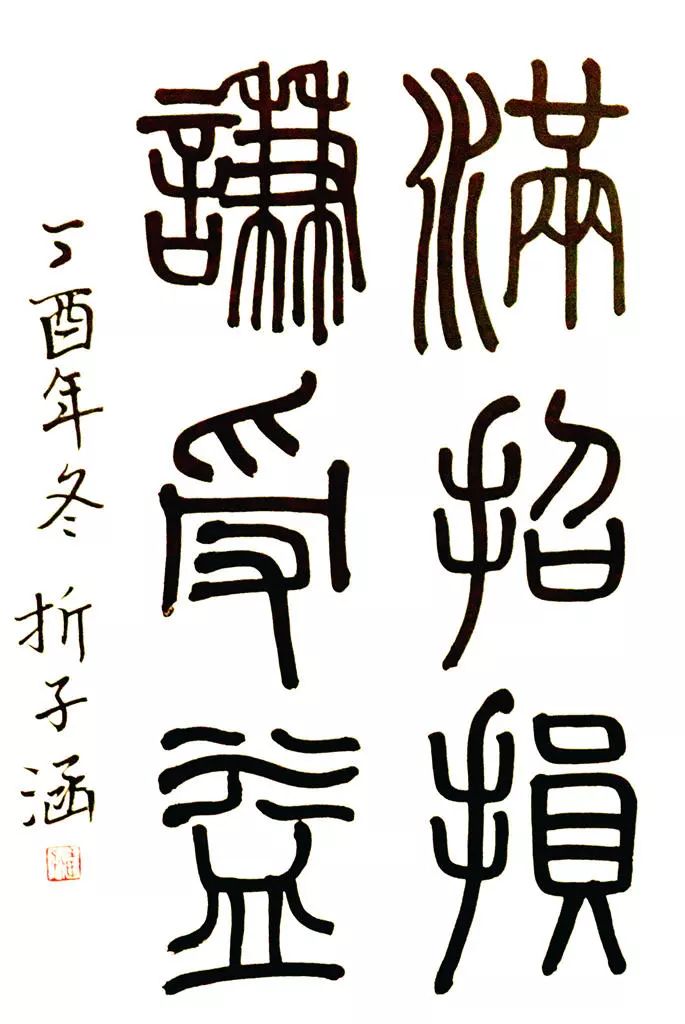 滿招損
謙受益
丁酉年冬 折子涵